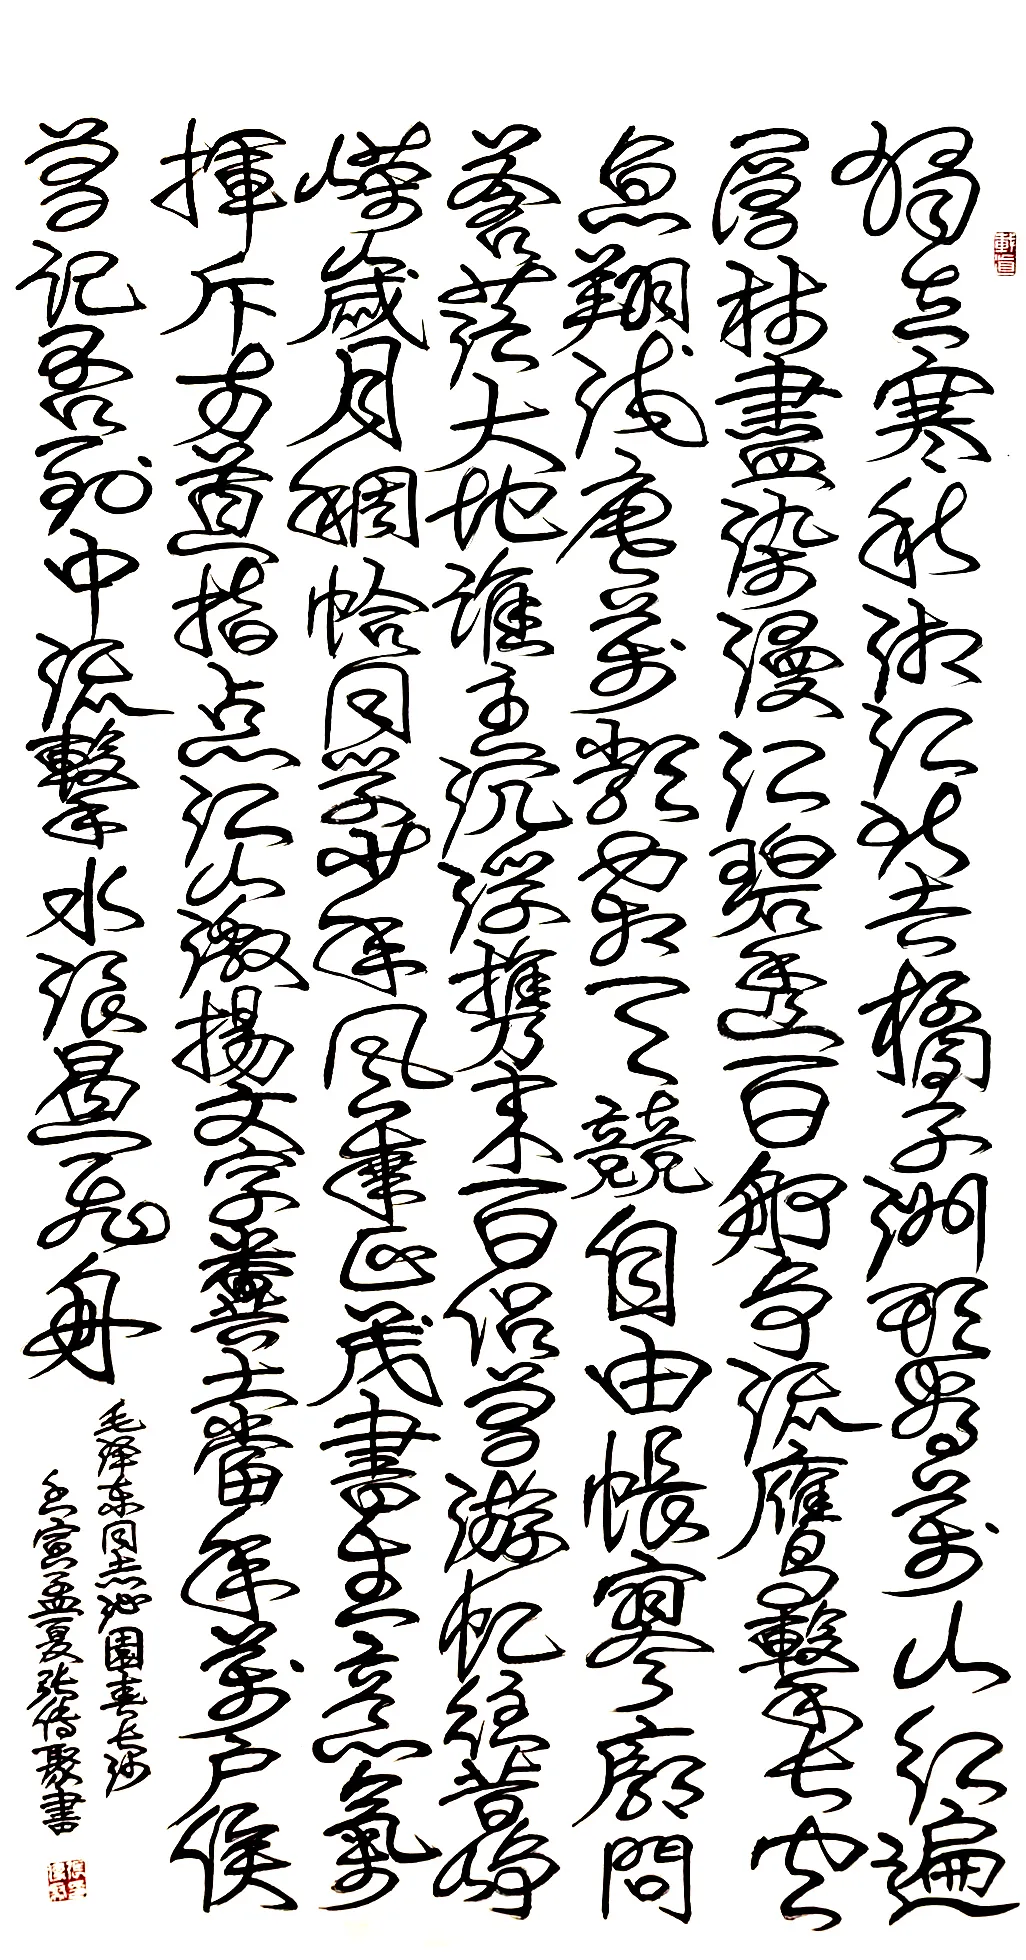 獨立寒秋湘江北去橘子洲頭看萬山紅遍
層林盡染漫江碧透百舸争流鷹擊长空
魚翔浅底萬類霜天競自由悵寥廓問
蒼茫大地誰主沉浮携來百侣曾游忆往昔崢
嶸歲月稠恰同學少年風華正茂書生意氣
揮斥方遒指点江山激揚文字糞土當年萬户侯
曾記否到中流擊水浪遏飛舟
毛泽东同志沁園春长沙
壬寅孟夏张傳聚書